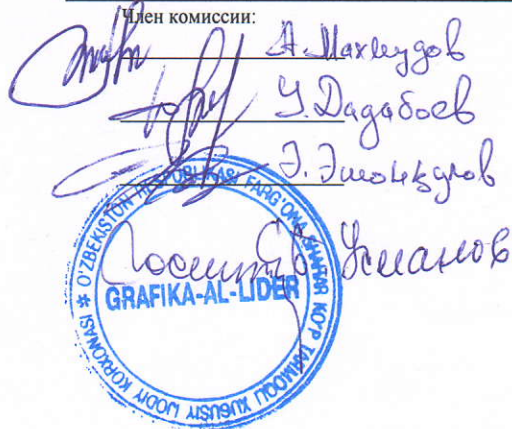 Член комиссии:
А. Махмудов
У. Дадабоев
Э. Эшонкулов
Усманов
O'ZBEKISTON RESPUBLIKASI FARG'ONA SHAHAR KO'P TARMOQLI XUSUSIY IJODIY KORXONASI
GRAFIKA-AL-LIDER